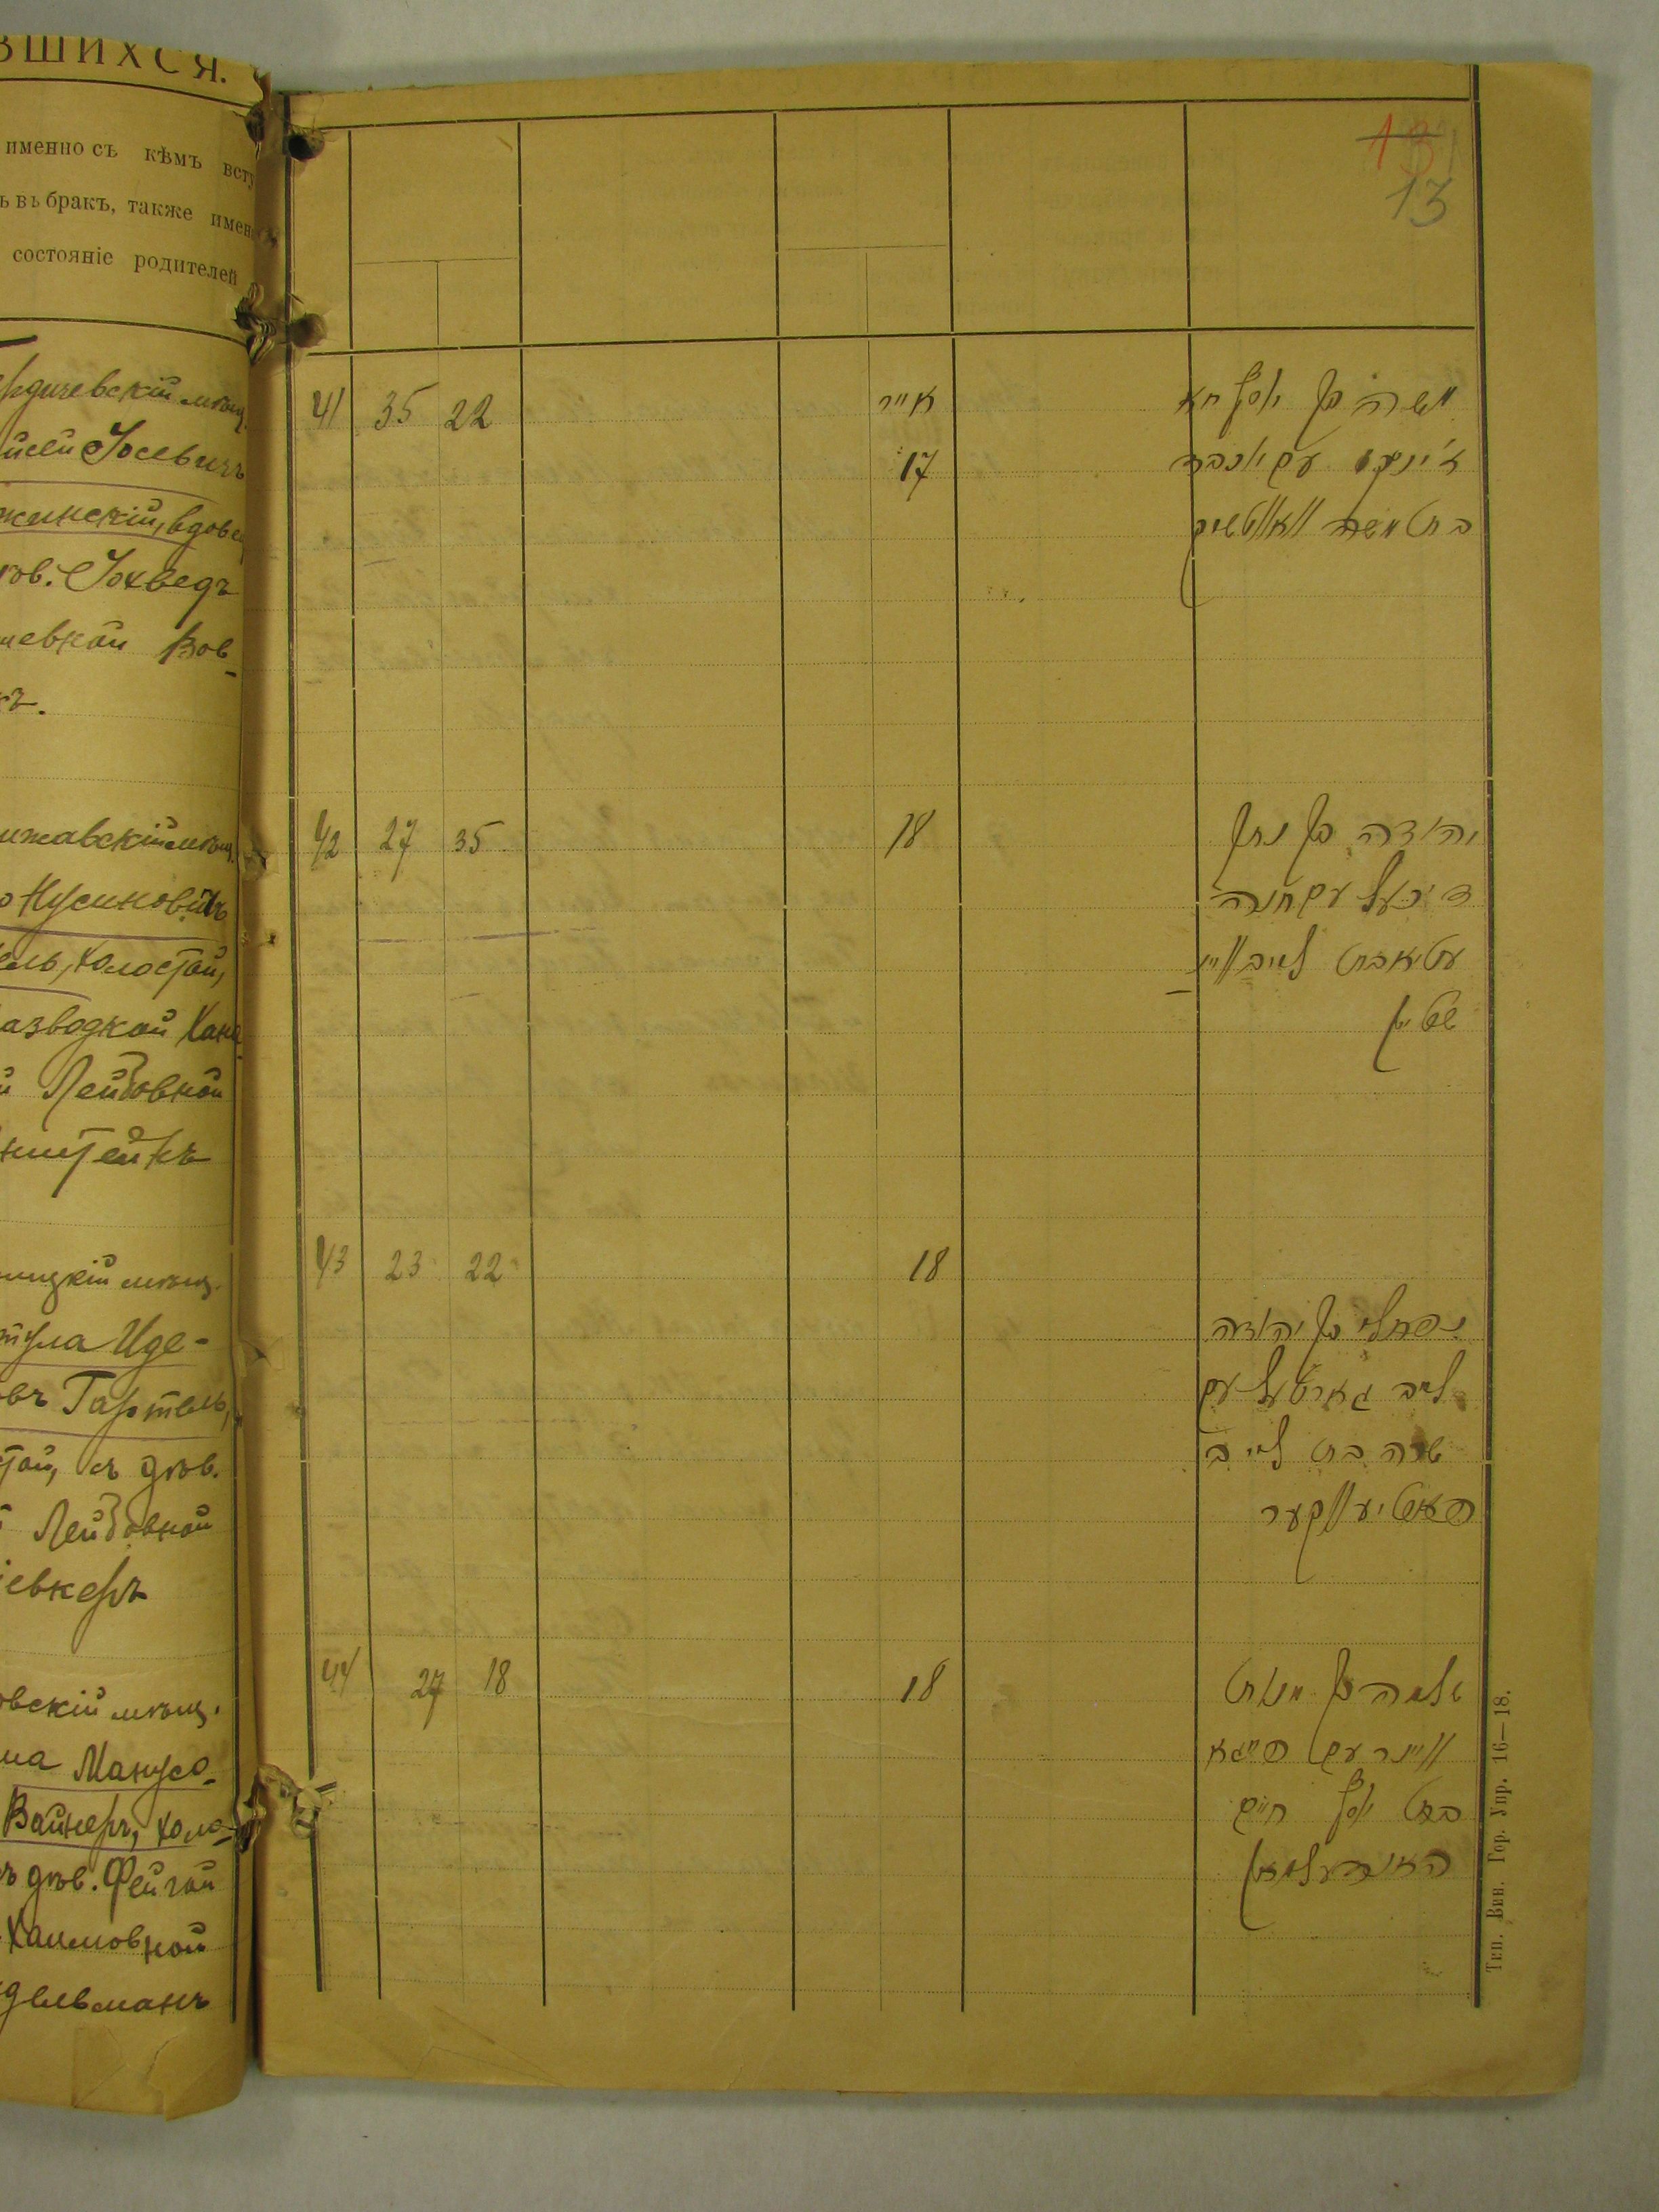 ВШИХСЯ.
именно съ кѣмъ всту
ь въ бракъ, также имен
состояніе родителей
рдичевскій мѣщ.
йсей Іосевичъ
жинскій, вдовец
ков. Іохведъ
шевной Вов-
къ.
ижавскій мѣщ.
о Нусиновичъ
ель, холостой,
азводкой Хана
й Лейбовной
нштейнъ
ницкій мѣщ.
тула Иде-
овъ Гартель,
стой, съ дѣв.
Лейбовной
іевкеръ
овскій мѣщ.
ма Манусо-
Вайнеръ, холо-
ъ дѣв. Фейгой
Хаимовной
дельманъ
13
13
41 35 22 אייר משה בן יוסף
17 עם יוכבד
בת משה וואווטשיק
42 27 35 18 יהודה בן נתן
עם חנה
בת לייב ויינ
שטיין
43 23 22 18
נפתלי בן יהודה
לייב גארטעל עם
שרה בת לייב
44 27 18 18 שלמה בן מנות
ויינר עם פייגא
בת יוסף חיים
האנדעלמאן
Тип. Вин. Гор. Упр. 16—18.